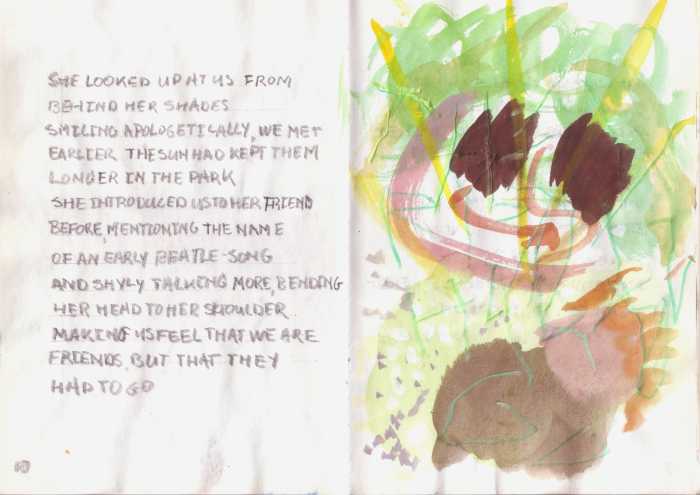 SHE LOOKED UP AT US FROM
BEHIND HER SHADES
SMILING APOLOGETICALLY, WE MET
EARLIER THE SUN HAD KEPT THEM
LONGER IN THE PARK
SHE INTRODUCED US TO HER FRIEND
BEFORE, MENTIONING THE NAME
OF AN EARLY BEATLE-SONG
AND SHYLY TALKING MORE, BENDING
HER HEAD TO HER SHOULDER
MAKING US FEEL THAT WE ARE
FRIENDS, BUT THAT THEY
HAD TO GO